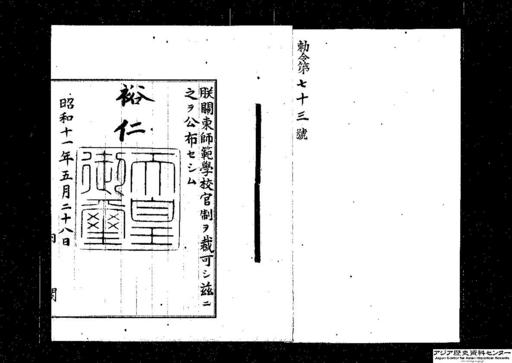 勅令第七十三號
朕關東師範學校官制ヲ裁可シ茲ニ
之ヲ公布セシム
裕仁
天皇
御璽
昭和十一年五月二十八日
内閣
アジア歴史資料センター
Japan Center for Asian Historical Records